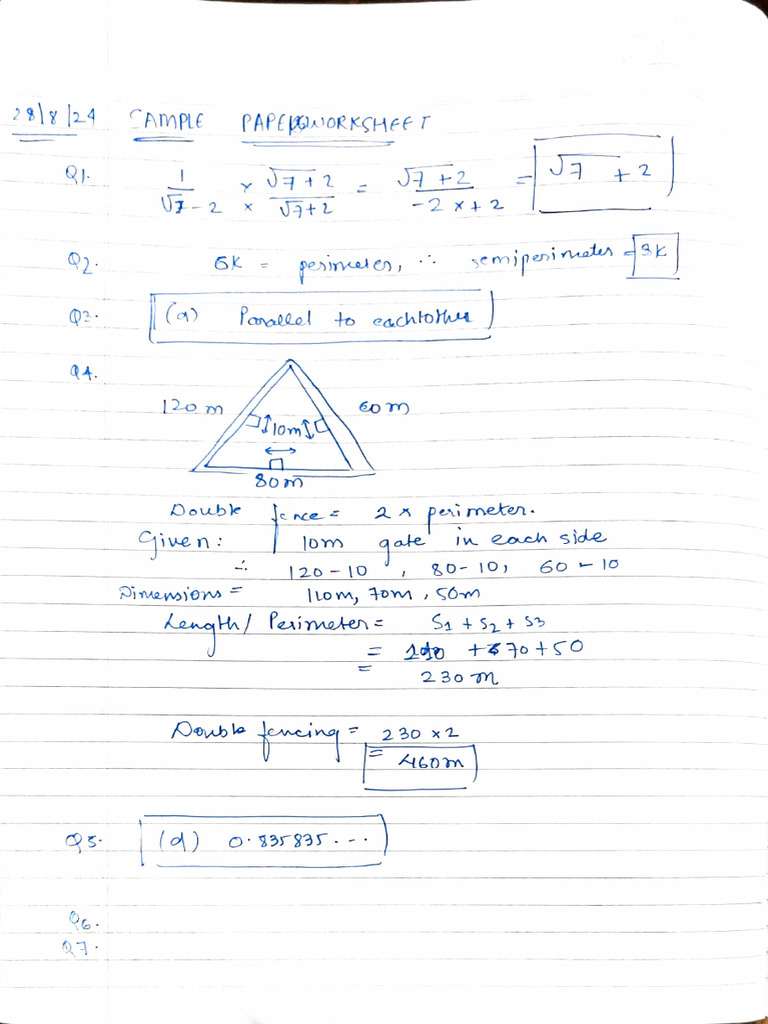 28/8/24 SAMPLE PAPER WORKSHEET
Q1. 1/(√7 - 2) × (√7 + 2)/(√7 + 2) = (√7 + 2)/(-2 × +2) = √7 + 2
Q2. 6K = perimeter, ∴ semiperimeter = 3K
Q3. (a) Parallel to eachother
Q4.
120 m 60 m
10m
80m
Double fence = 2 × perimeter.
Given: 10m gate in each side
∴ 120-10, 80-10, 60-10
Dimensions = 110m, 70m, 50m
Length/Perimeter = S1 + S2 + S3
= 110 + 70 + 50
= 230 m
Double fencing = 230 × 2
= 460m
Q5. (d) 0.835835...
Q6.
Q7.